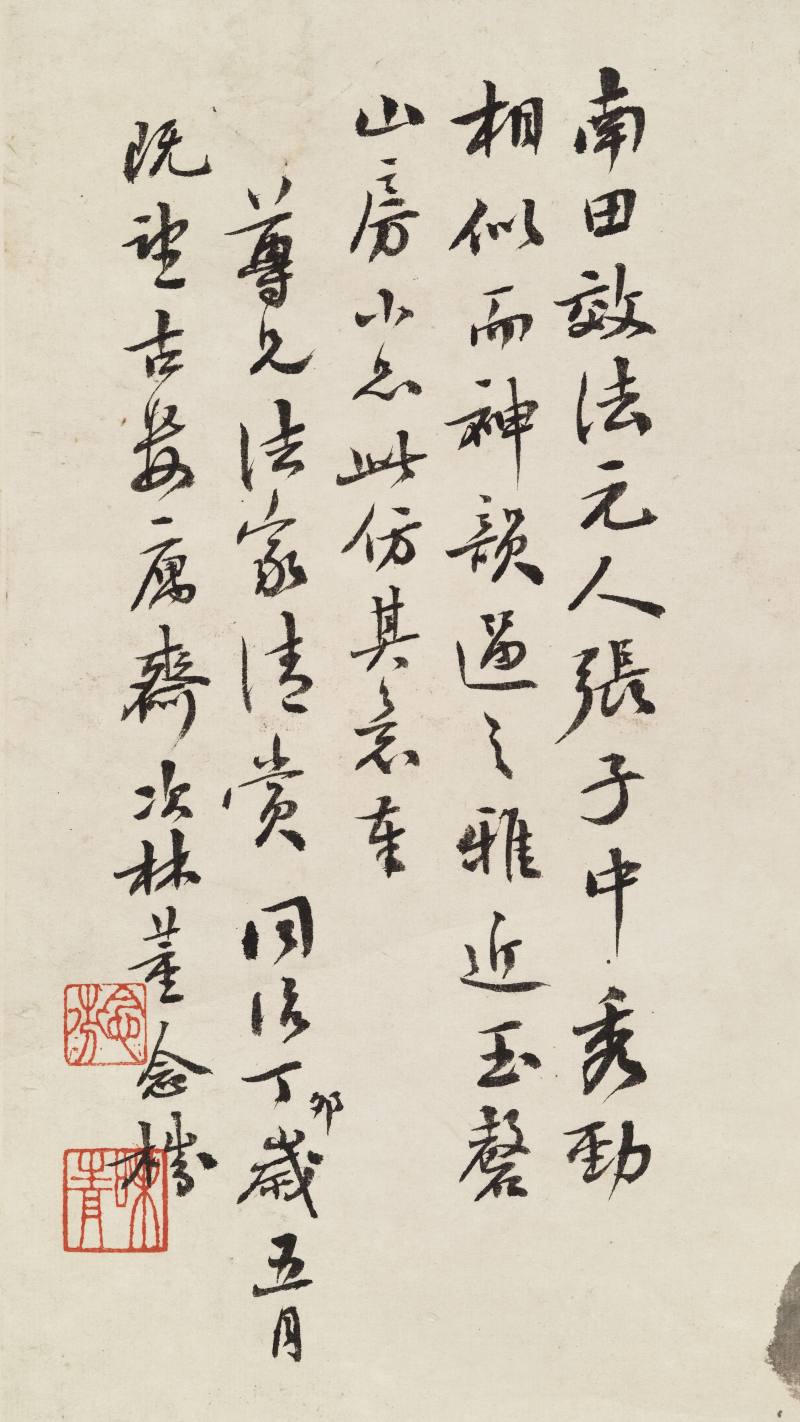 南田效法元人張子中秀勁
相似而神韻過之雅近玉磬
山房小品此仿其意奉
尊兄法家清賞 同治丁卯歲五月
既望古婁廡齋次林董念棻
念棻
味青